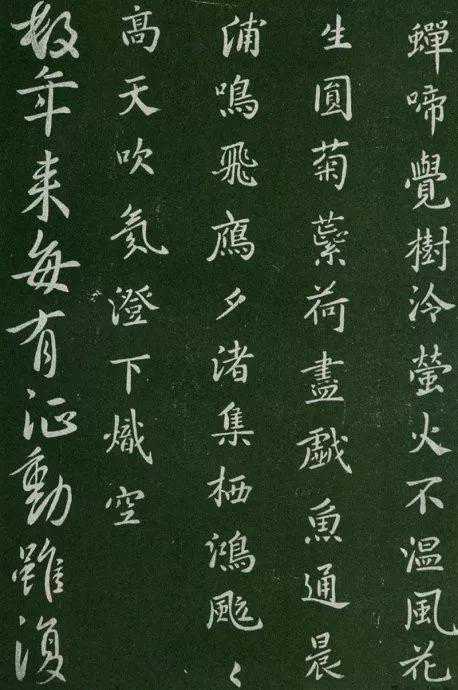 蟬啼覺樹冷螢火不温風花
生圓菊蘂荷盡戲魚通晨
浦鳴飛鴈夕渚集栖鴻颸〻
高天吹氛澄下熾空
数年来每有泟動雖復